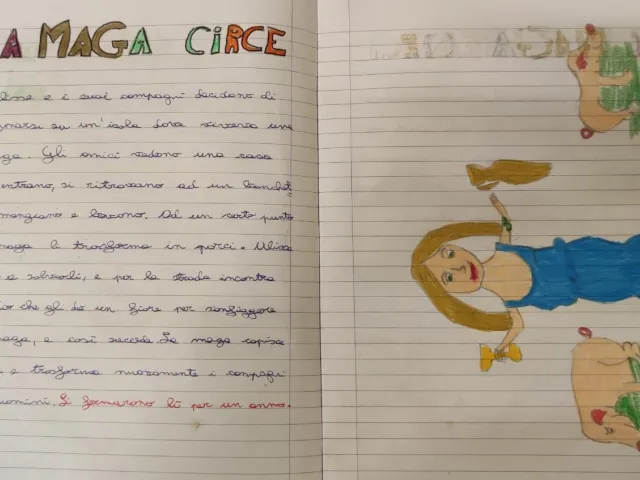 A MAGA CIRCE
e i suoi compagni decidono di
su un'isola dove viveva una
Gli amici vedono una casa
entrano, si ritrovano ad un banchet
mangiano e bevono. Ad un certo punto
maga li trasforma in porci. Ulisse
a salvarli, e per la strada incontra
che gli dà un fiore per
maga, e così succede. La maga capisce
e trasforma nuovamente i compagni
uomini. Si fermarono lì per un anno.